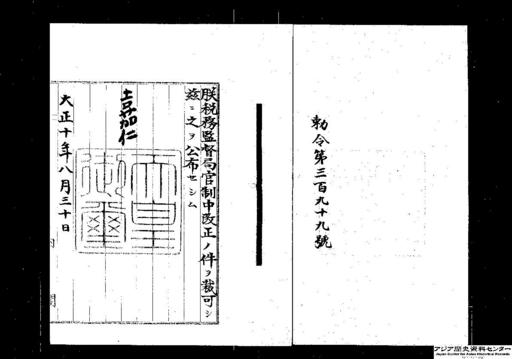 勅令第三百九十九號
朕税務監督局官制中改正ノ件ヲ裁可シ
茲ニ之ヲ公布セシム
嘉仁
天皇
御璽
大正十年八月三十日
内閣
アジア歴史資料センター
Japan Center for Asian Historical Records